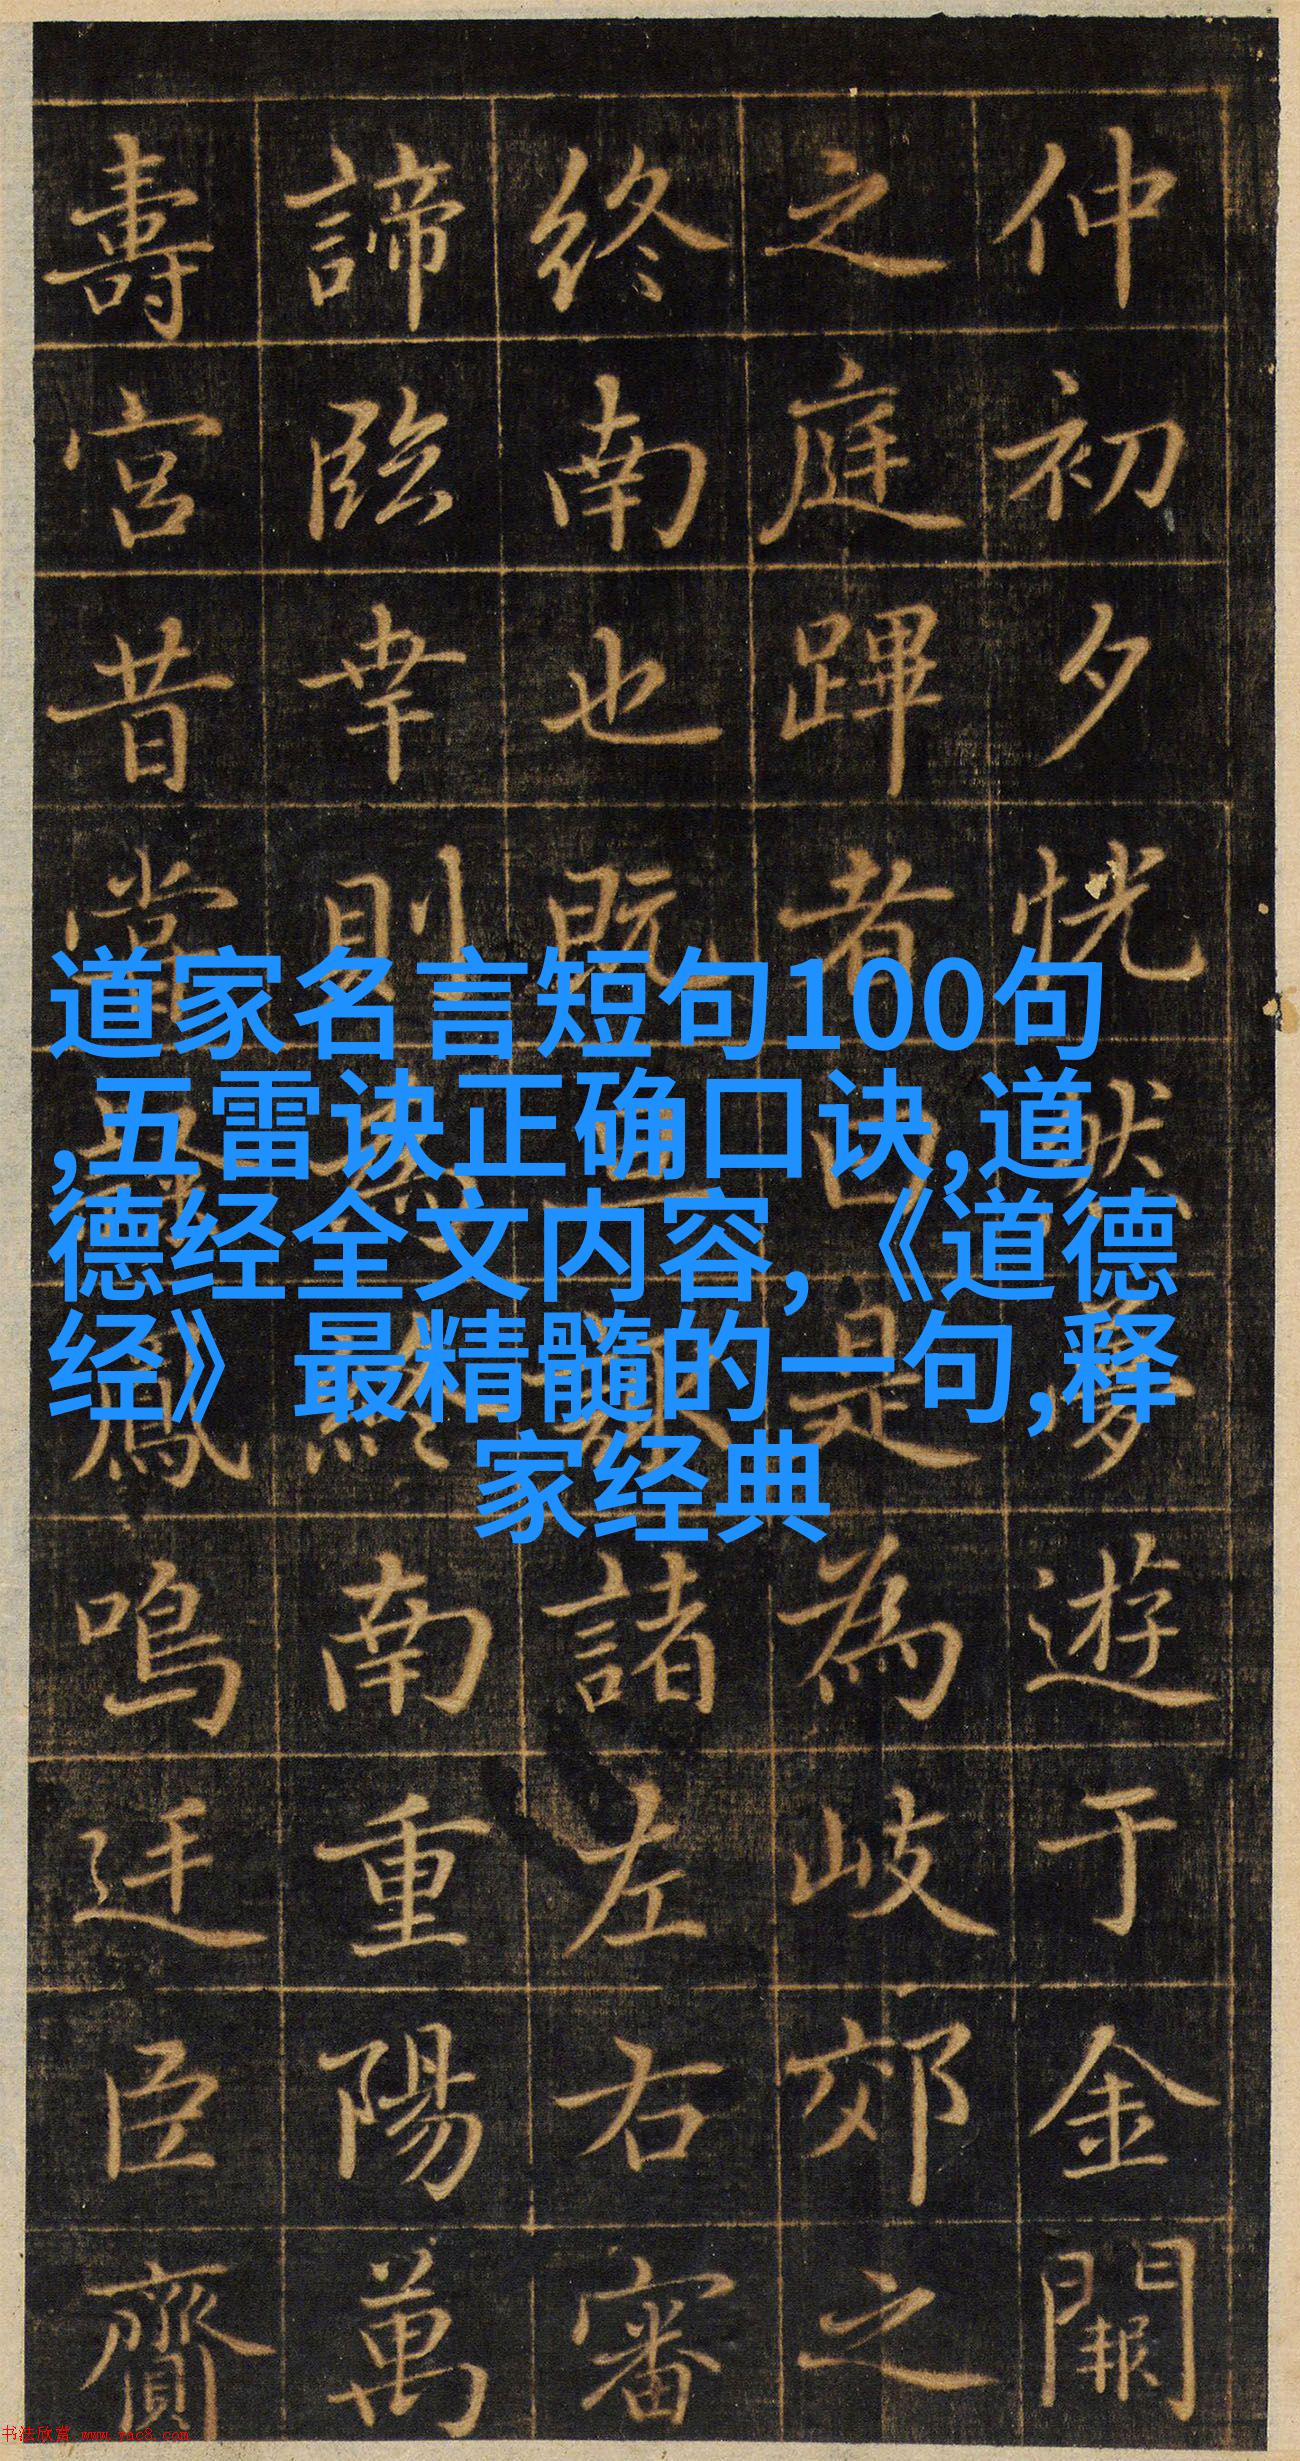 仲初夕恍然夢遊于金闕
之庭蹕者曰是為岐郊之
終南也既諸左右審
諦臨幸則終南重陽萬
壽宮昔嘗鳳鳴迓臣齎
道家名言短句100句
,五雷诀正确口诀,道
德经全文内容,《道德
经》最精髓的一句,释
家经典
书法欣赏 www.yac8.com